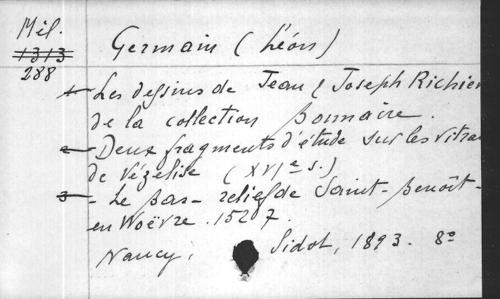 Mél.
1313
288
Germain (Léon)
1 - Les dessins de Jean & Joseph Richier
de la collection Bonnaire.
2 - Deux fragments d'étude sur les vitra
de Vézelise (XVIe s.)
3 - Le bas-relief de Saint-Benoît-
en Woëvre. 1527.
Nancy, Sidot, 1893. 8°